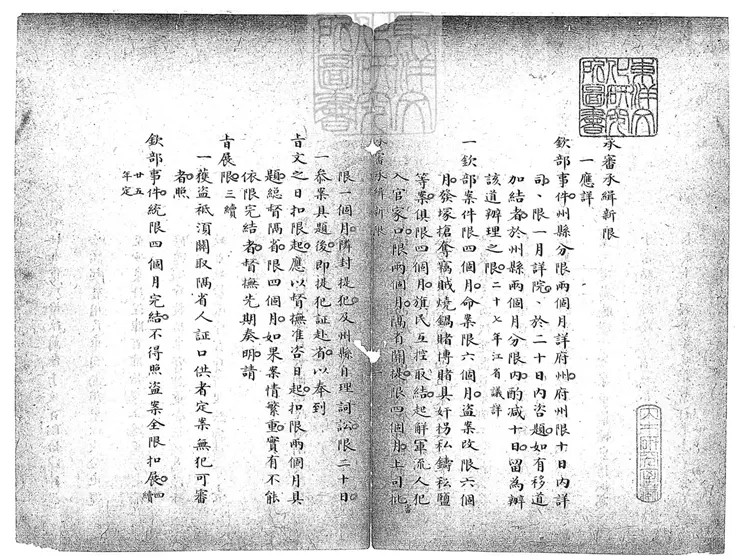 東洋文化研究所圖書
承審承緝新限
一應詳
欽部事件州縣分限兩個月詳府州府州限十日內詳
司、限一月詳院、於二十日內咨題如有移道
加結者於州縣兩個月分限內酌減十日留為辦
該道辦理之限二十七年江省議詳
一欽部案件限四個月命案限六個月盜案改限六個
月發塚搶奪竊賊燒鍋賭博賭具奸拐私鑄私鹽
等案俱限四個月旗民互控取結起解軍流人犯
入官家口限兩個月隔有關提限四個月上司批
審承緝新限
限一個月隣封提犯及州縣自理詞訟限二十日
一參案具題後即提犯証赴省以奉到
旨文之日扣限起應以督撫准咨日起扣限兩個月具
題總督隔省限四個月如果案情繁重實有不能
依限完結者督撫先期奏明請
旨展限三續
一獲盜祇須關取隔省人証口供者定案無犯可審
者照
欽部事件統限四個月完結不得照盜案全限扣展四續
廿五年定